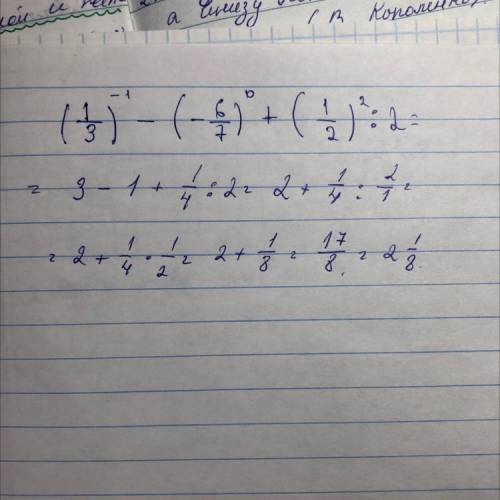 а внизу
( В. Короленко
(1/3)^-1 - (-6/7)^0 + (1/2)^2 : 2 =
= 3 - 1 + 1/4 : 2 = 2 + 1/4 : 2/1 =
= 2 + 1/4 · 1/2 = 2 + 1/8 = 17/8 = 2 1/8.